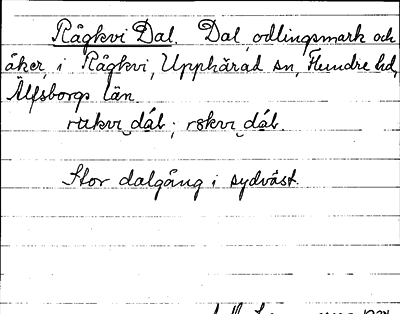 Rågkvi Dal. Dal, odlingsmark och
åker, i Rågkvi, Upphärad sn, Flundre hd,
Älfsborgs län.
rukvi dáb ; rskvi dáb.
Stor dalgång i sydväst.